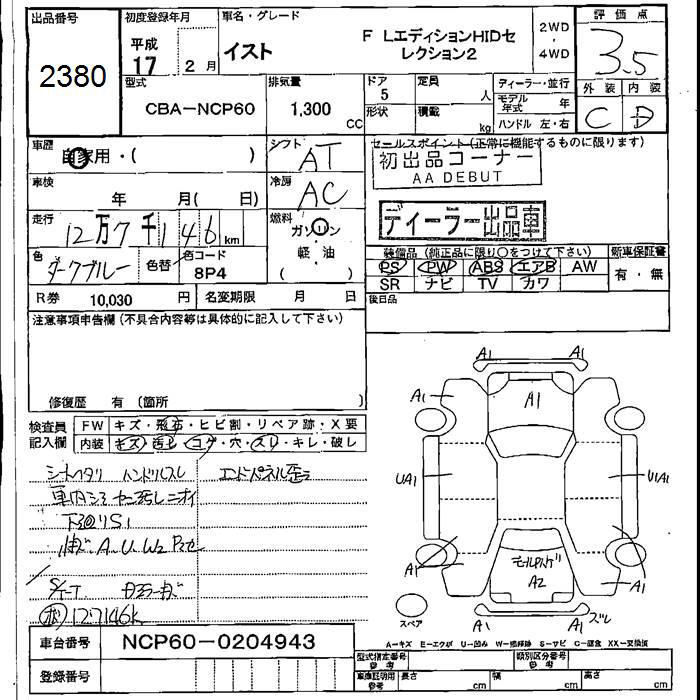 出品番号
2380
初度登録年月
平成
17 2月
車名・グレード
イスト
F LエディションHIDセ
レクション2
2WD
・
4WD
評価点
3.5
外装 内装
C D
型式
CBA-NCP60
排気量
1,300 CC
ドア
5
形状
定員
人
積載
kg
ディーラー・並行
モデル
年式 年
ハンドル 左・右
車歴
自家用・( )
シフト
AT
セールスポイント(正常に機能するものに限ります)
初出品コーナー
AA DEBUT
車検
年 月( 日)
冷房
AC
ディーラー出品車
走行
12万7千146 km
燃料
ガソリン
軽・油
色
ダークブルー
色替
色コード
8P4
装備品(純正品に限り〇をつけて下さい)
PS PW ABS エアB AW
SR ナビ TV カワ
新車保証書
有・無
R券 10,030 円
名変期限 月 日
後日品
注意事項申告欄(不具合内容等は具体的に記入して下さい)
修復歴 有(箇所 )
検査員
記入欄
FW キズ・飛石・ヒビ割・リペア跡・X要
内装 キズ・汚レ・コゲ・穴・スレ・キレ・破レ
シートヘタリ ハンドルスレ
エンドパネル歪
車内
下廻りS1
A.U.W2
127146k
A1 A1
A1 A1 A1
UA1 U1A1
A1 A1
モールハゲ
A2
A1 A1 ズレ
スペア
A-キズ E-エクボ U-凹み W-補修跡 S-サビ C-腐食 XX-交換済
車台番号
NCP60-0204943
登録番号
型式指定番号
参考
類別区分番号
参考
車庫証明用
参考
長さ cm
幅 cm
高さ cm